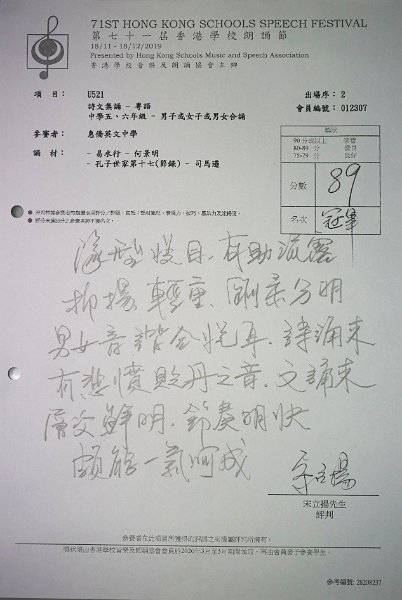 71ST HONG KONG SCHOOLS SPEECH FESTIVAL
第七十一屆香港學校朗誦節
18/11 - 18/12/2019
Presented by Hong Kong Schools Music and Speech Association
香港學校音樂及朗誦協會主辦
項目： U521 出場序：2
詩文集誦 - 粵語 會員編號：012307
中學五、六年級 - 男子或女子或男女合誦
參賽者： 惠僑英文中學
誦材： - 易水行 - 何景明
- 孔子世家第十七(節錄) - 司馬遷
90 分或以上 榮譽
80-89 分 優良
75-79 分 良好
分數 89
名次 冠軍
隊型悅目，有助流露
抑揚輕重，剛柔分明
男女音諧合悅耳，詩誦來
有悲憤 之音，文誦來
層次鮮明，節奏明快
頗能一氣呵成
宋立揚
宋立揚先生
評判
參考編號: 28208237